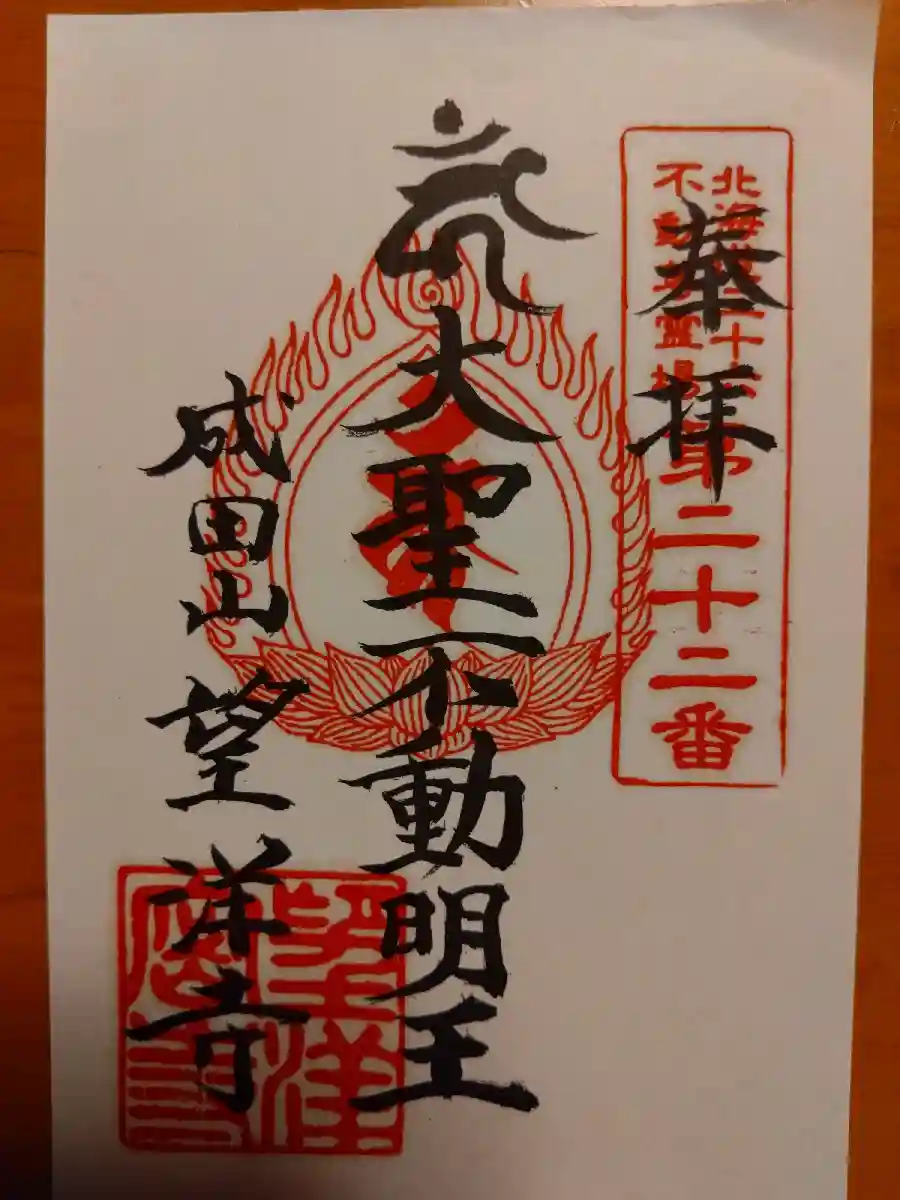 奉拝
北海道三十六
不動尊霊場
第二十二番
大聖不動明王
成田山 望洋寺